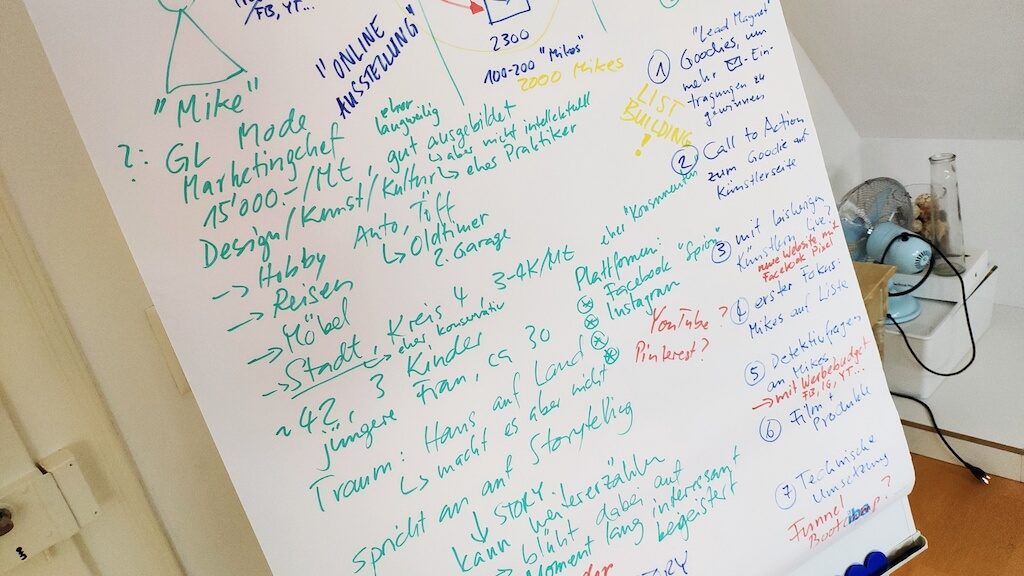 FB, YT...
"Mike"
"ONLINE
AUSSTELLUNG"
2300
100-200 "Mikes"
2000 Mikes
?: GL Mode
Marketingchef
eher
langweilig
15'000.-/Mt, gut ausgebildet
↳ aber nicht intellektuell
Design/Kunst/Kultur ↳ eher Praktiker
→ Hobby Auto, Töff
↳ Oldtimer
2. Garage
→ Reisen
→ Möbel
→ Stadt, Kreis 4 3-4K/Mt
↳ eher konservativ
~ 42, 3 Kinder
jüngere Frau, ca 30
Traum: Haus auf Land
↳ macht es aber nicht
spricht an auf Storytelling
↓ STORY
kann weitererzählen
→ blüht dabei auf
Moment lang interessant
begeistert
eher "Konsumenten"
Plattformen:
Facebook "Spion"
Instagram
YouTube?
Pinterest?
LIST
BUILDING
!
"Lead Magnet"
① Goodies, um
mehr ✉-Ein-
tragungen zu
gewinnen
② Call to Action
zum Goodie auf
Künstlerseite
③ mit bisherigen
Künstlern live?
neue Website mit
Facebook Pixel
④ erster Fokus:
Mikes auf Liste
⑤ Detektivfragen
an Mikes
→ mit Werbebudget
FB, IG, YT...
⑥ Film +
Produkte
⑦ Technische
Umsetzung
Funnel ?
Bootcamp?